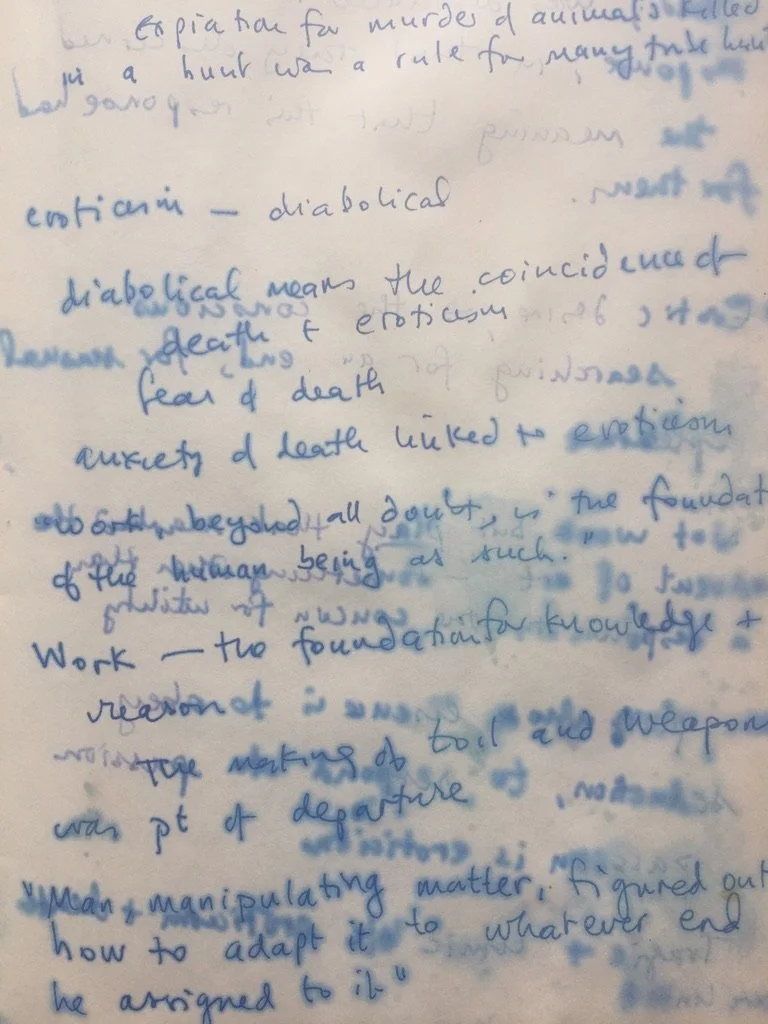 expiation for murder of animals killed
in a hunt was a rule for many tribe
eroticism — diabolical
diabolical means the coincidence of
death + eroticism
fear of death
anxiety of death linked to eroticism
Work, beyond all doubt, is the foundat
of the human being as such."
Work — the foundation for knowledge +
reason
The making of tool and weapon
was pt of departure
"Man, manipulating matter, figured out
how to adapt it to whatever end
he assigned to it"